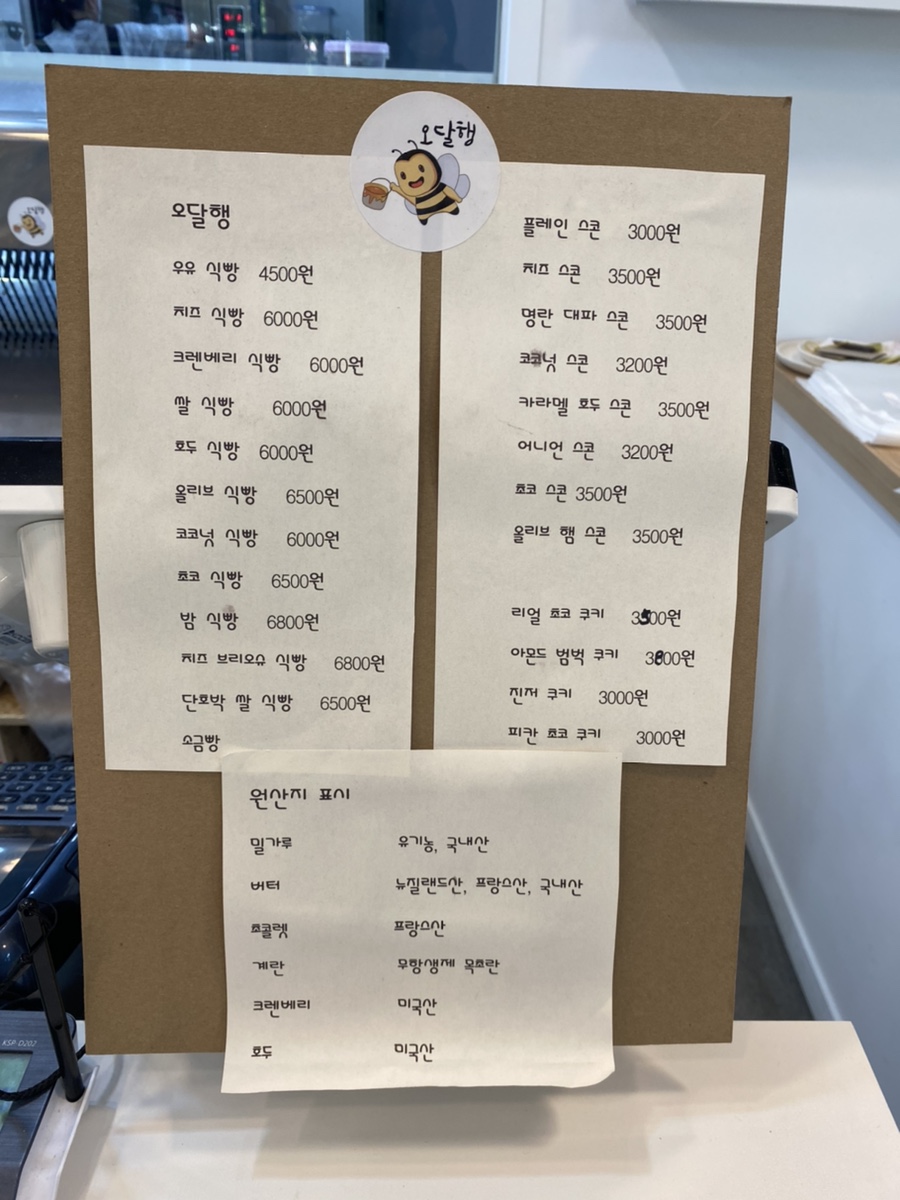 오달행
오달행
우유 식빵 4500원
치즈 식빵 6000원
크렌베리 식빵 6000원
쌀 식빵 6000원
호두 식빵 6000원
올리브 식빵 6500원
코코넛 식빵 6000원
초코 식빵 6500원
밤 식빵 6800원
치즈 브리오슈 식빵 6800원
단호박 쌀 식빵 6500원
소금빵
플레인 스콘 3000원
치즈 스콘 3500원
명란 대파 스콘 3500원
코코넛 스콘 3200원
카라멜 호두 스콘 3500원
어니언 스콘 3200원
초코 스콘 3500원
올리브 햄 스콘 3500원
리얼 초코 쿠키 3500원
아몬드 범벅 쿠키 3800원
진저 쿠키 3000원
피칸 초코 쿠키 3000원
원산지 표시
밀가루 유기농, 국내산
버터 뉴질랜드산, 프랑스산, 국내산
초콜렛 프랑스산
계란 무항생제 목초란
크렌베리 미국산
호두 미국산
KSP-D202